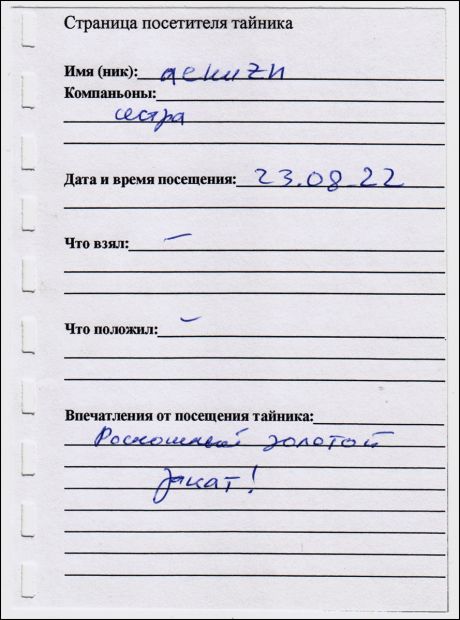 Страница посетителя тайника
Имя (ник): денизи
Компаньоны:
сестра
Дата и время посещения: 23.08.22
Что взял: –
Что положил: –
Впечатления от посещения тайника:
Роскошный золотой
закат!